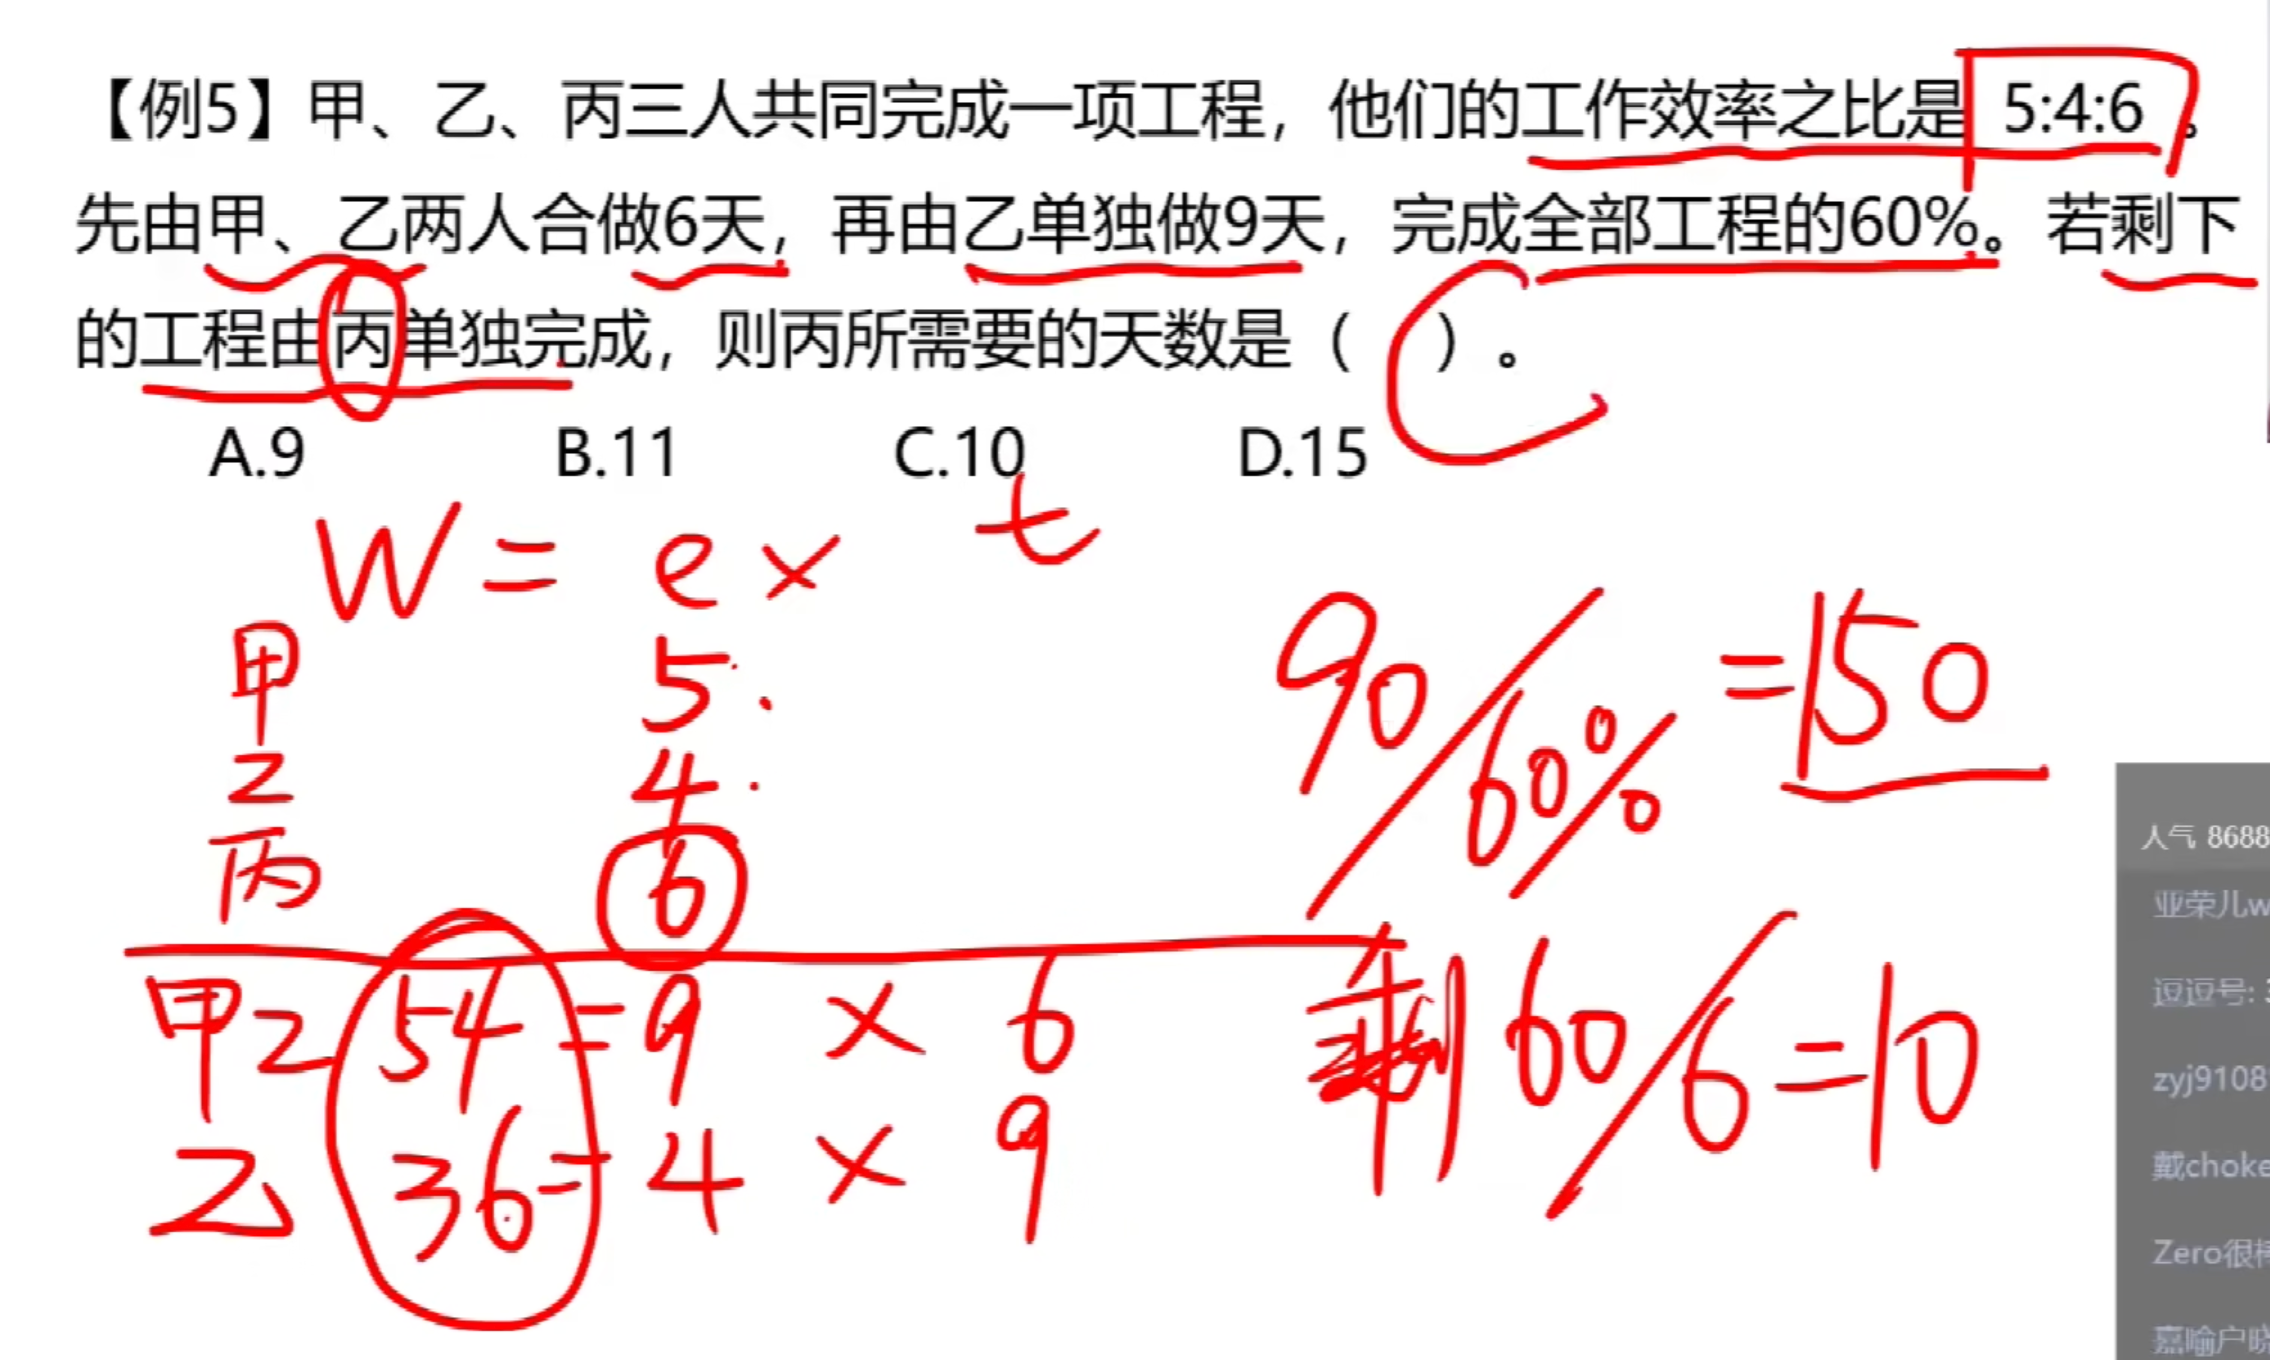 【例5】甲、乙、丙三人共同完成一项工程，他们的工作效率之比是 5:4:6 。
先由甲、乙两人合做6天，再由乙单独做9天，完成全部工程的60%。若剩下
的工程由丙单独完成，则丙所需要的天数是（ ）。
A.9 B.11 C.10 D.15
W = e × t
甲 5
乙 4
丙 6
甲乙 54 = 9 × 6
乙 36 = 4 × 9
90/60% = 150
剩 60/6 = 10
人气 8688
亚荣儿w
逗逗号:
zyj9108
戴choke
Zero很